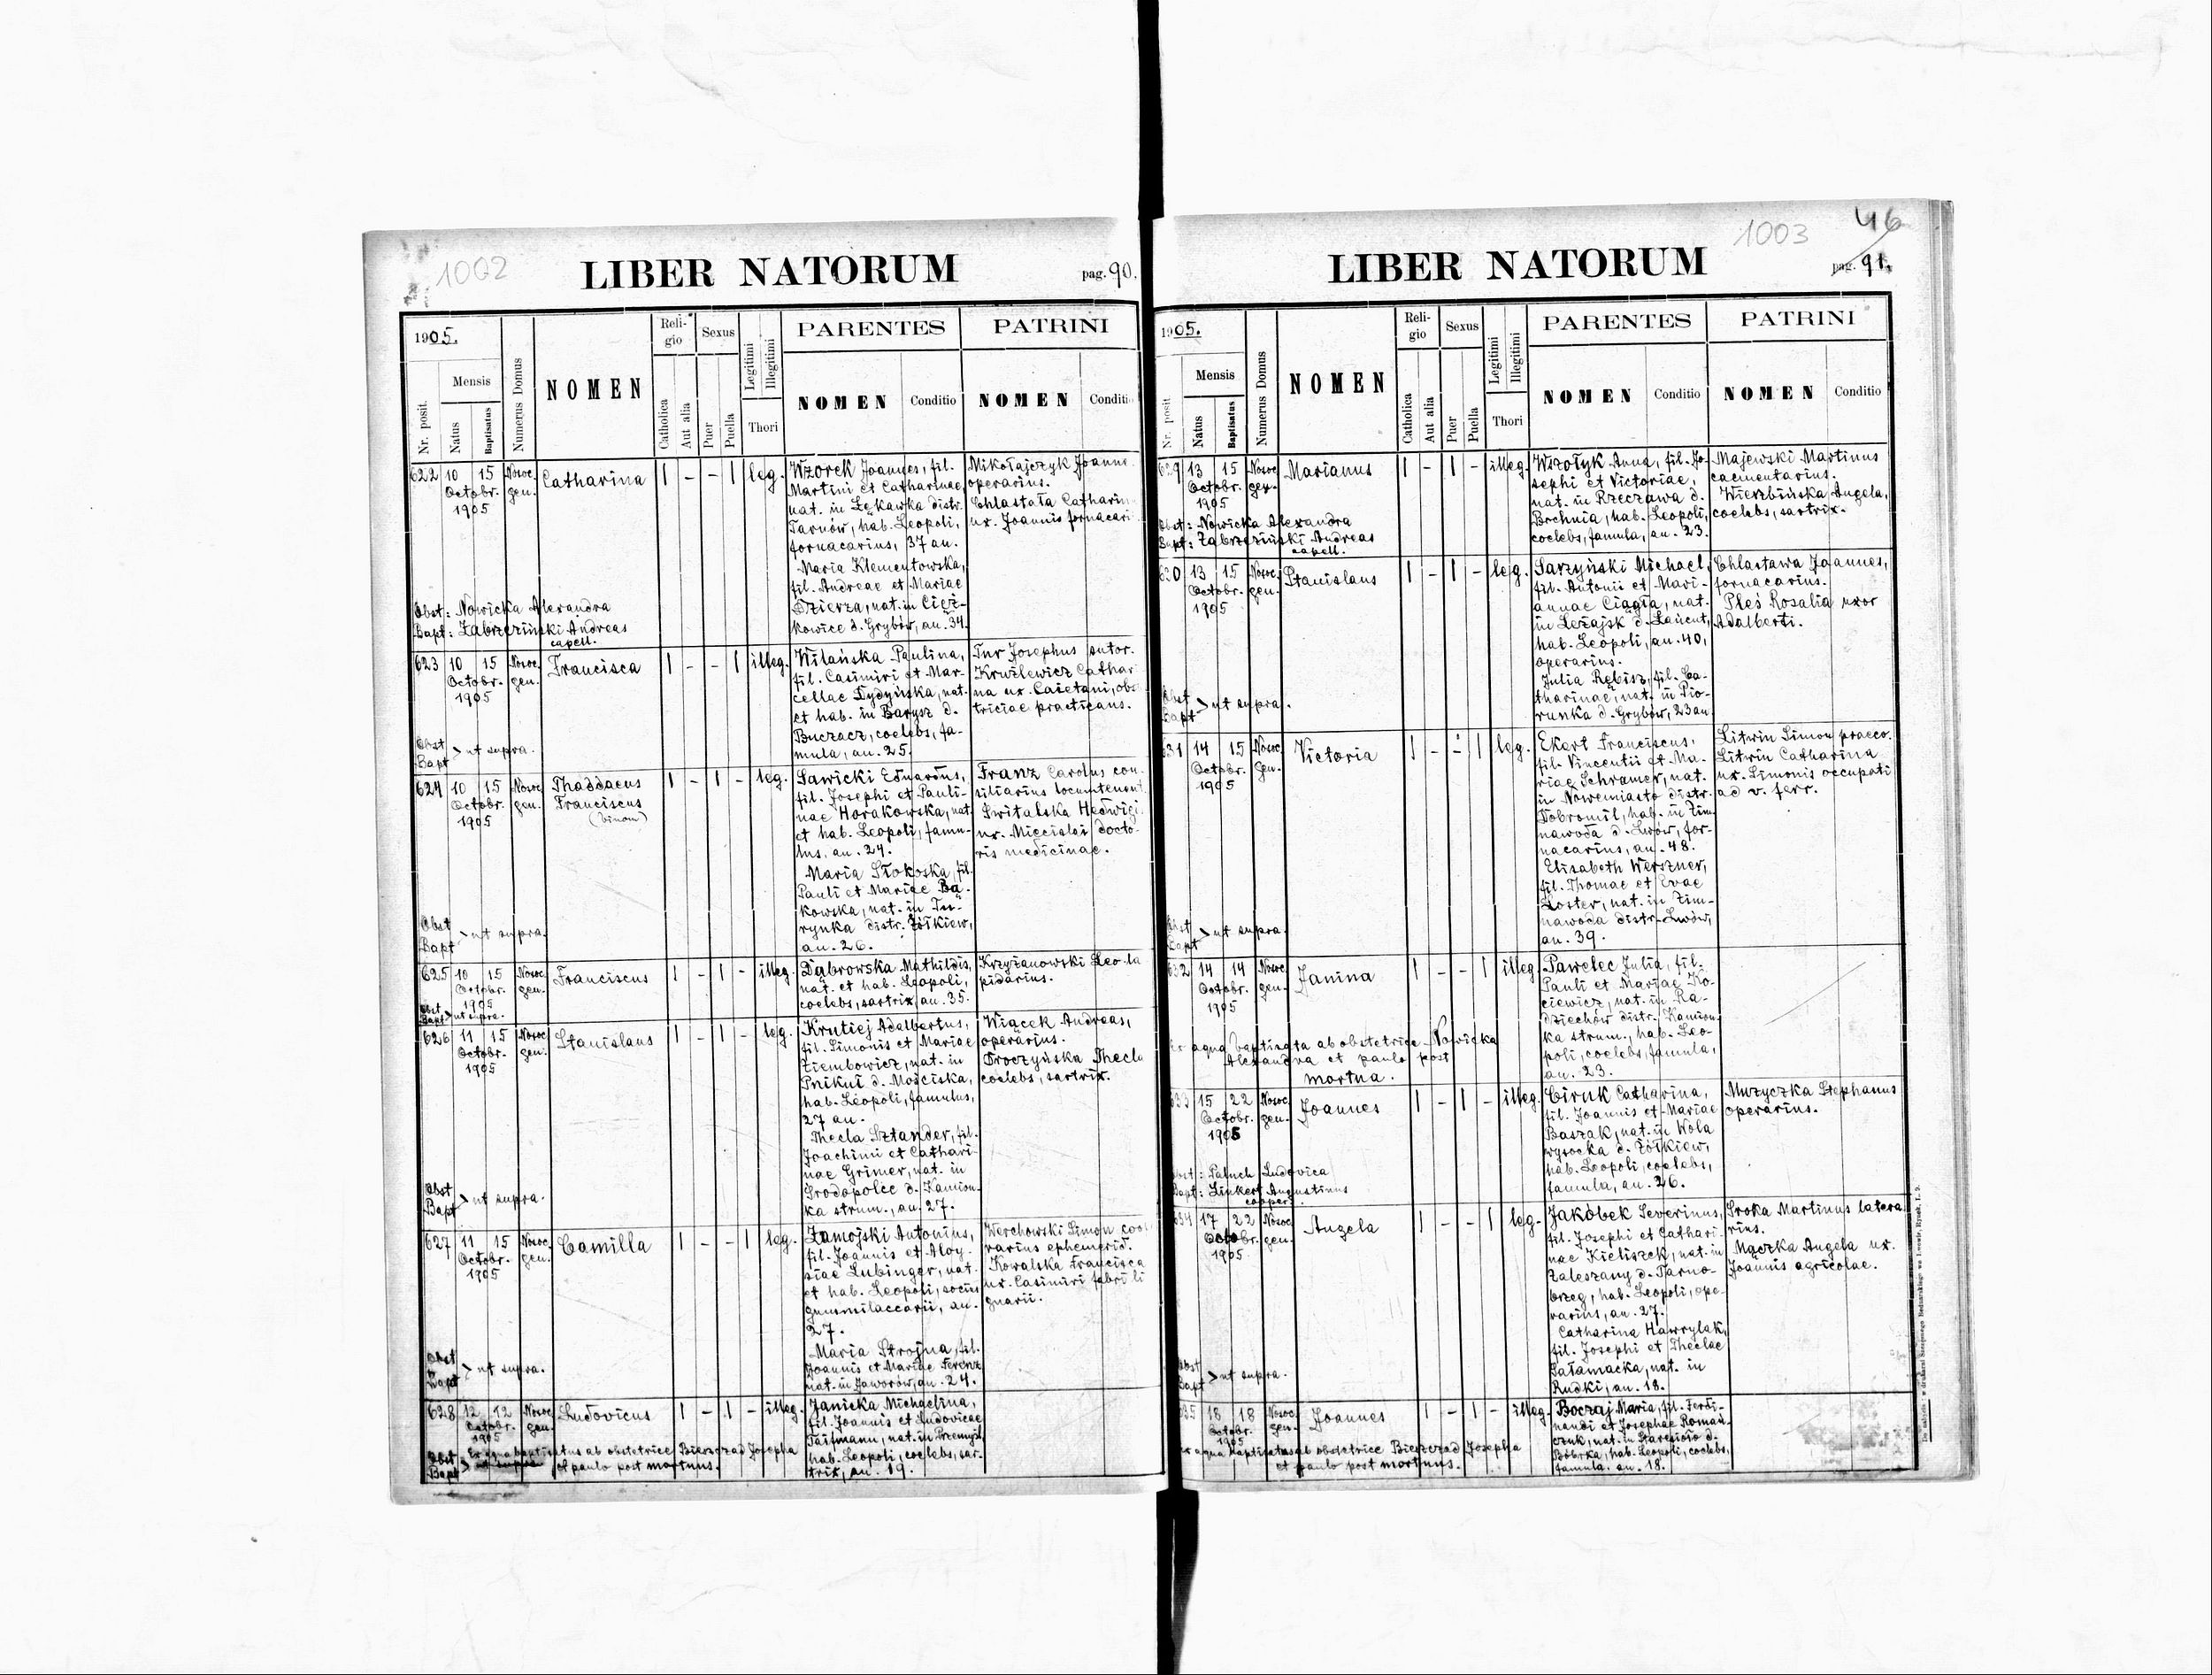 1002
LIBER NATORUM
pag. 90.
1905.
Mensis
Nr. posit.
Natus
Baptisatus
Numerus Domus
NOMEN
Religio
Catholica
Aut alia
Sexus
Puer
Puella
Legitimi
Illegitimi
Thori
PARENTES
NOMEN
Conditio
PATRINI
NOMEN
Conditio
622 10 15 Nosoc. gen.
Octobr.
1905
Catharina
1 - - 1 leg.
Wzorek Joannes, fil.
Martini et Catharinae,
nat. in Łękawka distr.
Tarnów, hab. Leopoli,
fornacarius, 37 an.
Maria Klementowska,
fil. Andreae et Mariae
Dzierza, nat. in Cięż-
kowice d. Grybów, an. 34.
Mikołajczyk Joannes
operarius.
Chlastała Catharin
ux. Joannis fornacari
Obst: Nowicka Alexandra
Bapt: Zabrzeziński Andreas
capell.
623 10 15 Nosoc. gen.
Octobr.
1905
Francisca
1 - - 1 illeg.
Wilańska Paulina,
fil. Casimiri et Mar-
cellae Dydyńska, nat.
et hab. in Barysz d.
Buczacz, coelebs, fa-
mula, an. 25.
Tur Josephus sutor.
Kruźlewicz Cathari
na ux. Caietani, obs
triciae practicans.
Obst
Bapt > ut supra.
624 10 15 Nosoc. gen.
Octobr.
1905
Thaddaeus
Franciscus
(binom)
1 - 1 - leg.
Sawicki Eduardus,
fil. Josephi et Pauli-
nae Horakowska, nat.
et hab. Leopoli, famu-
lus, an. 24.
Maria Stokoska, fil.
Pauli et Mariae Bą-
kowska, nat. in Tu-
rynka distr. Żółkiew,
an. 26.
Franz Carolus con
siliarius locumtenent.
Świtalska Hedwigi
ux. Miecislai docto-
ris medicinae.
Obst
Bapt > ut supra.
625 10 15 Nosoc. gen.
Octobr.
1905
Franciscus
1 - 1 - illeg.
Dąbrowska Mathildis,
nat. et hab. Leopoli,
coelebs, sartrix, an. 35.
Krzyżanowski Leo la
pidarius.
Obst
Bapt > ut supra.
626 11 15 Nosoc. gen.
Octobr.
1905
Stanislaus
1 - 1 - leg.
Krutiej Adalbertus,
fil. Simonis et Mariae
Ziembowicz, nat. in
Pnikut d. Mościska,
hab. Leopoli, famulus,
27 an.
Thecla Sztander, fil.
Joachimi et Cathari-
nae Grimer, nat. in
Grodopolce d. Kamion-
ka strum., an. 27.
Wiącek Andreas,
operarius.
Droczyńska Thecla
coelebs, sartrix.
Obst
Bapt > ut supra.
627 11 15 Nosoc. gen.
Octobr.
1905
Camilla
1 - - 1 leg.
Zamojski Antonius,
fil. Joannis et Aloy-
siae Lubinger, nat.
et hab. Leopoli, socius
gummilaccarii, an.
27.
Maria Strojna, fil.
Joannis et Mariae Ferenz,
nat. in Jaworów, an. 24.
Werchowski Simon
varius ephemerid.
Kowalska Francisca
ux. Casimiri fabri li
gnarii.
Obst
Bapt > ut supra.
628 12 12 Nosoc. gen.
Octobr.
1905
Ludovicus
1 - 1 - illeg.
Janicka Michaelina,
fil. Joannis et Ludovicae
Taitmann, nat. in Przemyśl,
hab. Leopoli, coelebs, sar-
trix, an. 19.
Ex aqua baptisatus ab obstetrice Bieszczad Josepha
et paulo post mortuus.
Obst
Bapt
1003
46
LIBER NATORUM
pag. 91.
1905.
Mensis
Nr. posit.
Natus
Baptisatus
Numerus Domus
NOMEN
Religio
Catholica
Aut alia
Sexus
Puer
Puella
Legitimi
Illegitimi
Thori
PARENTES
NOMEN
Conditio
PATRINI
NOMEN
Conditio
629 13 15 Nosoc. gen.
Octobr.
1905
Marianus
1 - 1 - illeg.
Wrzołyk Anna, fil. Jo-
sephi et Victoriae,
nat. in Rzeczawa d.
Bochnia, hab. Leopoli,
coelebs, famula, an. 23.
Majewski Martinus
caementarius.
Wierzbińska Angela,
coelebs, sartrix.
Obst: Nowicka Alexandra
Bapt: Zabrzeziński Andreas
capell.
630 13 15 Nosoc. gen.
Octobr.
1905
Stanislaus
1 - 1 - leg.
Sarzyński Michael,
fil. Antonii et Mari-
annae Ciągła, nat.
in Leżajsk d. Łańcut,
hab. Leopoli, an. 40,
operarius.
Julia Rębisz, fil. Ca-
tharinae, nat. in Pio-
runka d. Grybów, 23 an.
Chlastawa Joannes,
fornacarius.
Pleś Rosalia uxor
Adalberti.
Obst
Bapt > ut supra.
631 14 15 Nosoc. gen.
Octobr.
1905
Victoria
1 - - 1 leg.
Ekert Franciscus,
fil. Vincentii et Ma-
riae Schramer, nat.
in Nowemiasto distr.
Dobromil, hab. in Zim-
nawoda d. Lwów, for-
nacarius, an. 48.
Elisabeth Werszner,
fil. Thomae et Evae
Loster, nat. in Zim-
nawoda distr. Lwów,
an. 39.
Litwin Simon praeco.
Litwin Catharina
ux. Simonis occupati
ad v. ferr.
Obst
Bapt > ut supra.
632 14 14 Nosoc. gen.
Octobr.
1905
Janina
1 - - 1 illeg.
Pawelec Julia, fil.
Pauli et Mariae Ko-
ciewicz, nat. in Ra-
dziechów distr. Kamion-
ka strum., hab. Leo-
poli, coelebs, famula,
an. 23.
Ex aqua baptisata ab obstetrice Nowicka
Alexandra et paulo post
mortua.
633 15 22 Nosoc. gen.
Octobr.
1905
Joannes
1 - 1 - illeg.
Ciruk Catharina,
fil. Joannis et Mariae
Baszak, nat. in Wola
wysocka d. Żółkiew,
hab. Leopoli, coelebs,
famula, an. 26.
Muzyczka Stephanus
operarius.
Obst: Paluch Ludovica
Bapt: Linkert Augustinus
cooper.
634 17 22 Nosoc. gen.
Octobr.
1905.
Angela
1 - - 1 leg.
Jakóbek Severinus,
fil. Josephi et Cathari-
nae Kieliszek, nat. in
Zaleszany d. Tarno-
brzeg, hab. Leopoli, ope-
rarius, an. 27.
Catharina Hawrylak,
fil. Josephi et Theclae
Sałamacka, nat. in
Rudki, an. 18.
Sroka Martinus latera
rius.
Mączka Angela ux.
Joannis agricolae.
Obst
Bapt > ut supra.
635 18 18 Nosoc. gen.
Octobr.
1905
Joannes
1 - 1 - illeg.
Boczaj Maria, fil. Ferdi-
nandi et Josephae Roman-
czuk, nat. in Staresioło d.
Bóbrka, hab. Leopoli, coelebs,
famula, an. 18.
Ex aqua baptisatus ab obstetrice Bieszczad Josepha
et paulo post mortuus.